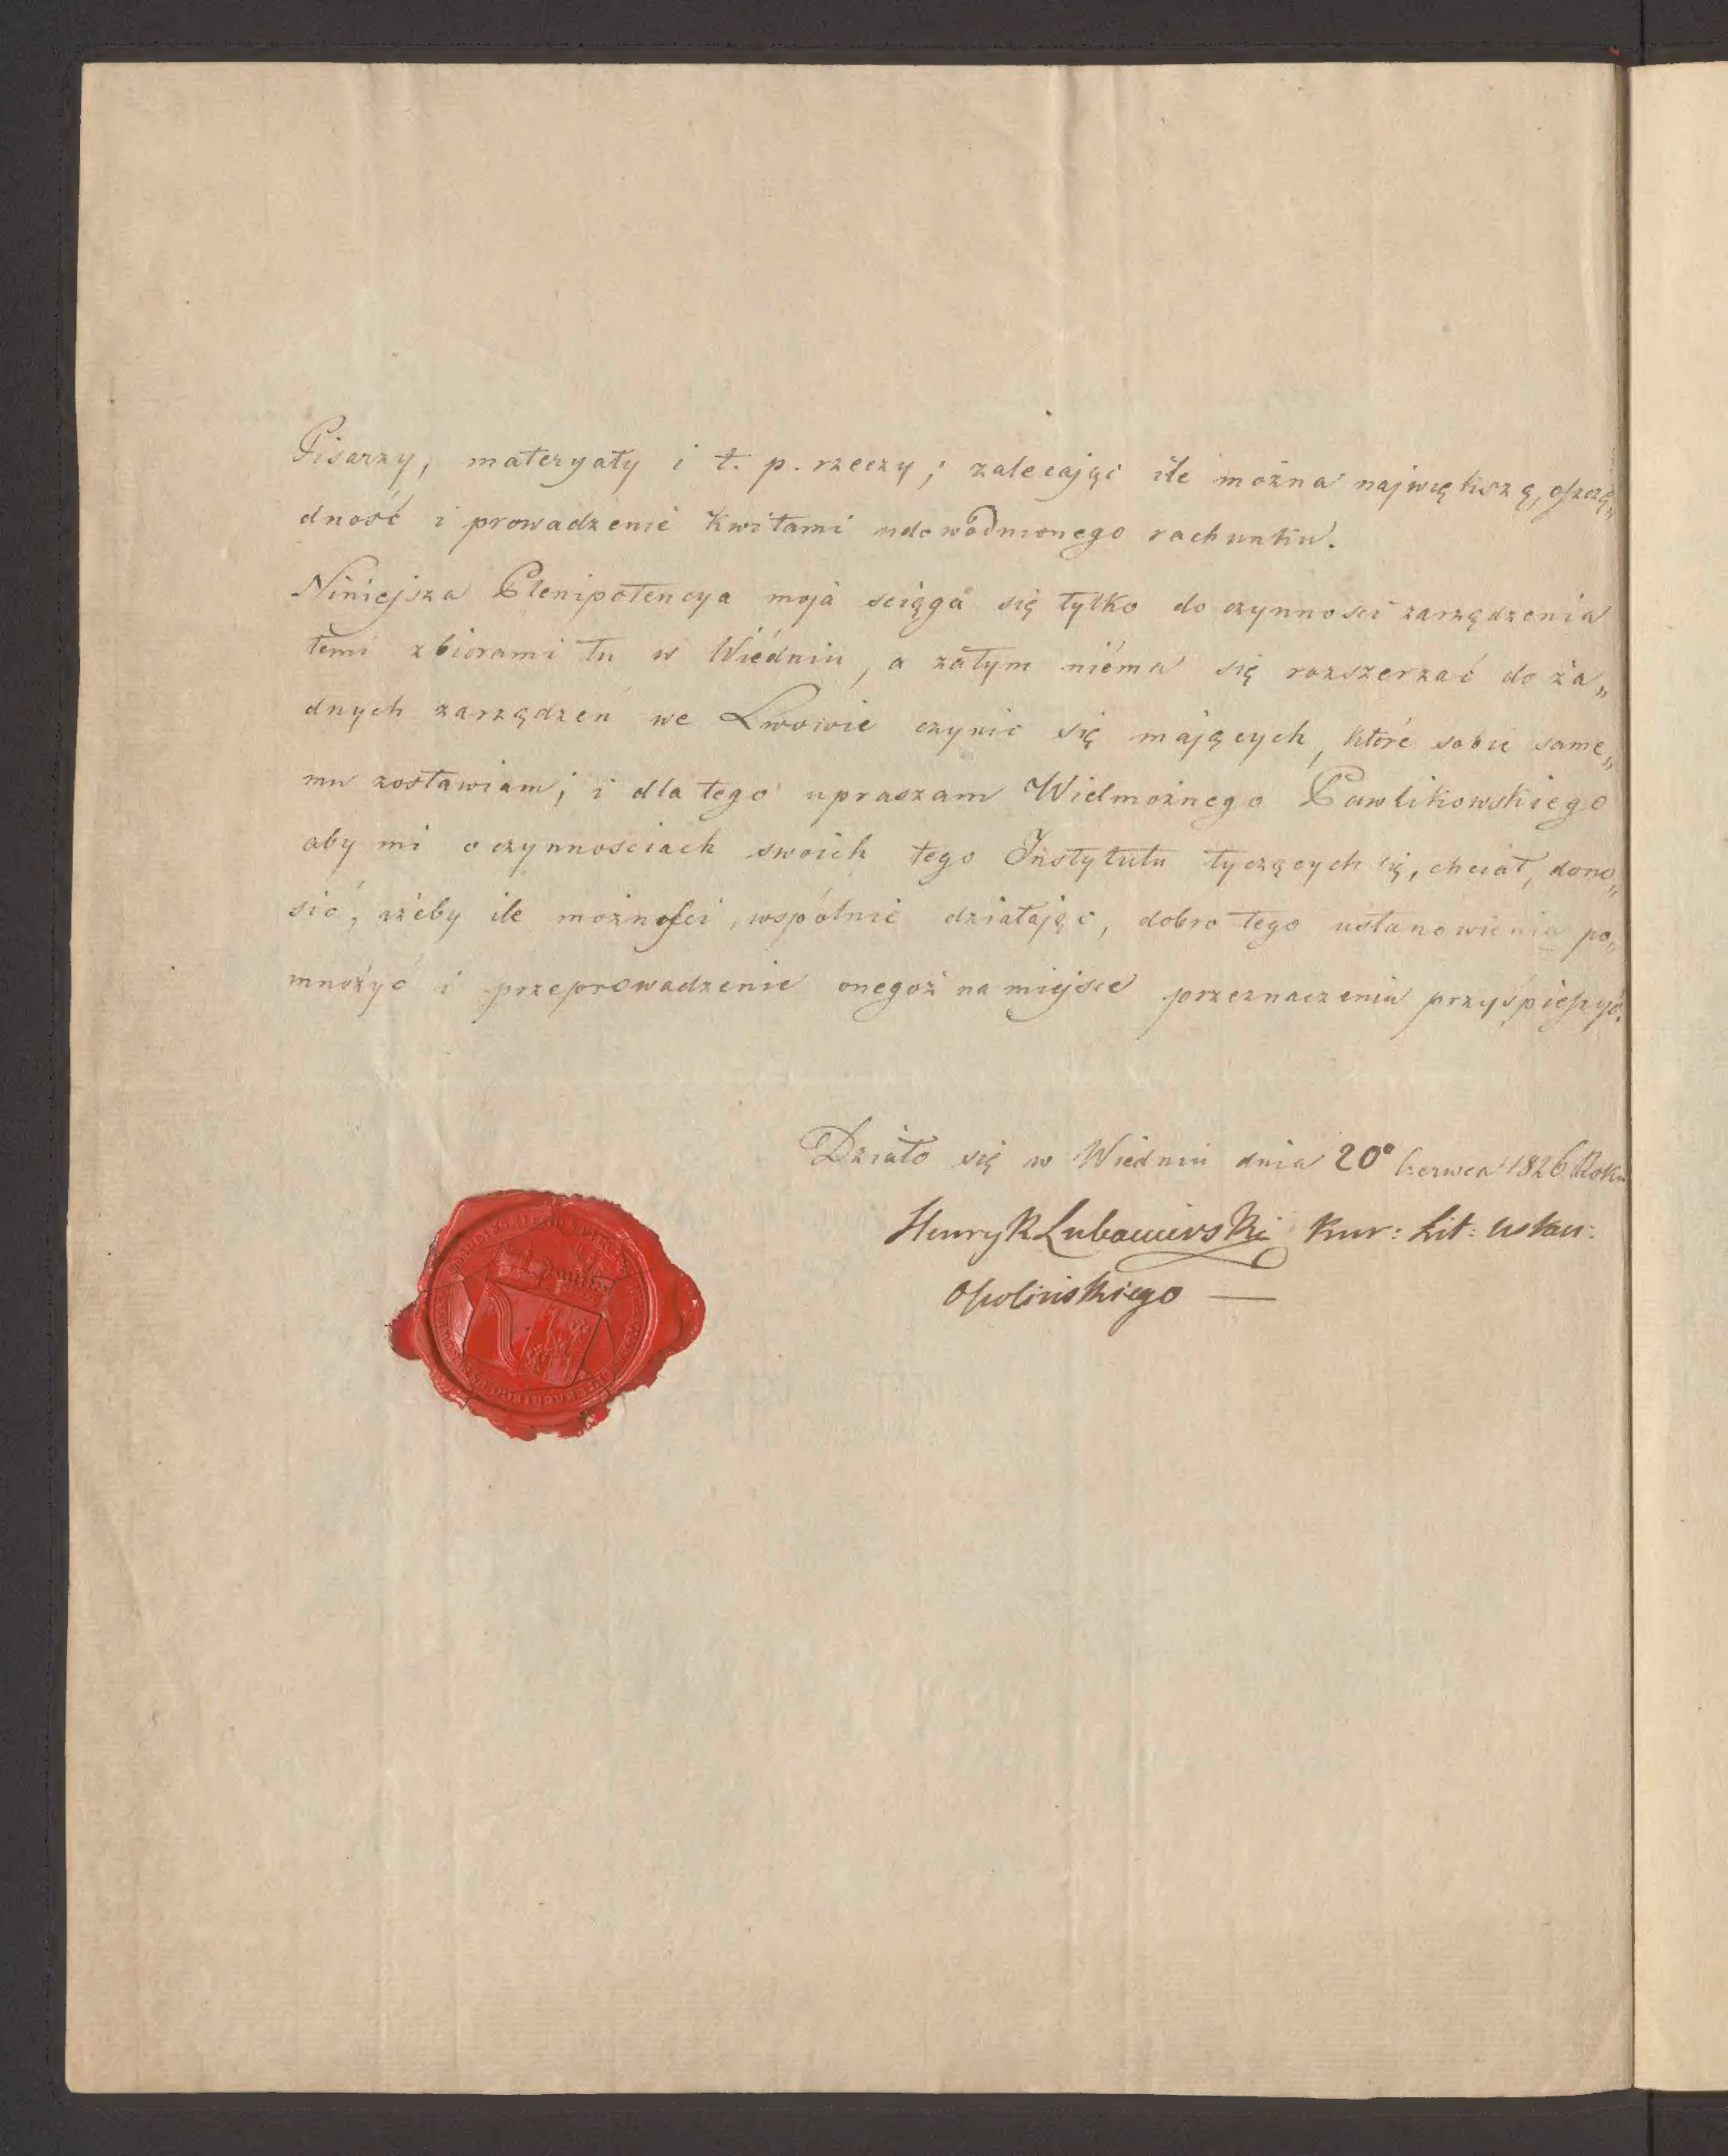 Pisarzy, materyały i t. p. rzeczy; zalecając ile można największą, oszczę„
dność i prowadzenie kwitami udowodnionego rachunku.
Niniejsza Plenipotencya moja sciąga się tylko do czynności zarządzenia
temi zbiorami tu w Wiédniu, a zatym niéma się rozszerzać do ża„
dnych zarządzeń we Lwowie czynić się mających, które sobie same„
mu zostawiam; i dla tego upraszam Wielmożnego Pawlikowskiego
aby mi o czynnościach swoich tego Instytutu tyczących się, chciał, dono„
sić, ażeby ile możności, wspólnie działając, dobro tego ustanowienia po„
mnożyć i przeprowadzenie onegoż na miejsce przeznaczenia przyśpieszyć.
Działo się w Wiedniu dnia 20° Czerwca 1826 Roku
Henryk Lubomirski Kur: Lit:
Ossolińskiego —